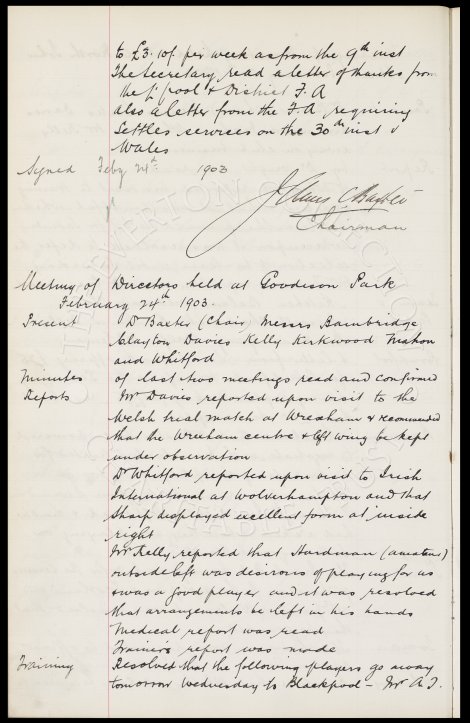 to £3.10/. per week as from the 9th inst
The Secretary read a letter of thanks from
the L'pool & District F.A
also a letter from the F.A. requiring
Settles services on the 30th inst v
Wales
Signed Feby 24th 1903
James C Baxter
Chairman
Meeting of Directors held at Goodison Park
February 24th 1903.
Present Dr Baxter (Chair) Messrs Bainbridge
Clayton Davies Kelly Kirkwood Mahon
and Whitford
Minutes of last two meetings read and confirmed
Reports Mr Davies reported upon visit to the
Welsh trial match at Wrexham & recommended
that the Wrexham centre & left wing be kept
under observation
Dr Whitford reported upon visit to Irish
International at Wolverhampton and that
Sharp displayed excellent form at inside
right
Mr Kelly reported that Hardman (amateur)
outside left was desirous of playing for us
& was a good player and it was resolved
that arrangements be left in his hands
Medical report was read
Trainer's report was made
Training Resolved that the following players go away
tomorrow Wednesday to Blackpool - Mr A.T.